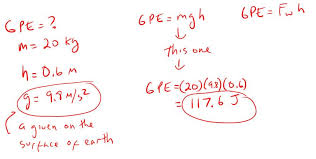 GPE = ?
m = 20 kg
h = 0.6 m
g = 9.8 m/s²
a given on the
surface of earth
GPE = mgh
↓
this one
↓
GPE = (20)(9.8)(0.6)
= 117.6 J
GPE = Fwh